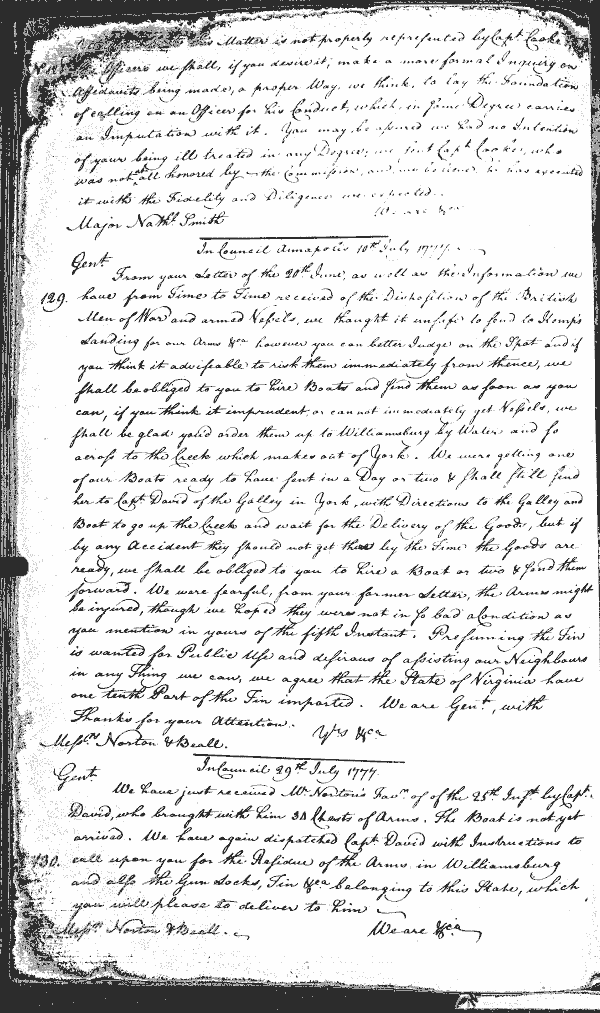 this Matter is not properly represented by Capt Cooke
Officers we shall, if you desire it, make a more formal Inquiry on
Affidavits being made, a proper Way, we think, to lay the Foundation
of calling on an Officer for his Conduct, which, in some Degree carries
an Imputation with it. You may be assured we had no Intention
of your being ill treated in any Degree; we sent Capt Cooke, who
was not at all honored by the Commission, and, we believe, he has executed
it with the Fidelity and Diligence we expected.
We are &ca
Major Nathl Smith
In Council Annapolis 10th July 1777.
Gent
From your Letter of the 20th June, as well as the Information we
129. have from Time to Time received of the Disposition of the British
Men of War and armed Vessels, we thought it unsafe to send to Kemps
Landing for our Arms &ca however you can better Judge on the Spot and if
you think it adviseable to risk them immediately from thence, we
shall be obliged to you to hire Boats and send them as soon as you
can, if you think it imprudent or cannot immediately get Vessels, we
shall be glad you'd order them up to Williamsburg by Water and so
across to the Creek which makes out of York. We were getting one
of our Boats ready to have sent in a Day or two & shall still send
her to Capt David of the Galley in York, with Directions to the Galley and
Boat to go up the Creek and wait for the Delivery of the Goods, but if
by any Accident they should not get there by the Time the Goods are
ready, we shall be obliged to you to hire a Boat or two & send them
forward. We were fearful, from your former Letter, the Arms might
be injured, though we hoped they were not in so bad a Condition as
you mention in yours of the fifth Instant. Presuming the Tin
is wanted for Public Use and desirous of assisting our Neighbours
in any Thing we can, we agree that the State of Virginia have
one tenth Part of the Tin imported. We are Gent, with
Thanks for your Attention.
Yrs &ca
Messrs Norton & Beall.
In Council 29th July 1777.
Gent.
We have just received Mr Norton's Favr of of the 25th Inst by Capt.
David, who brought with him 30 Chests of Arms. The Boat is not yet
arrived. We have again dispatched Capt David with Instructions to
130. call upon you for the Residue of the Arms in Williamsburg
and also the Gun Locks, Tin &ca belonging to this State, which
you will please to deliver to him
Messrs Norton & Beall.
We are &ca